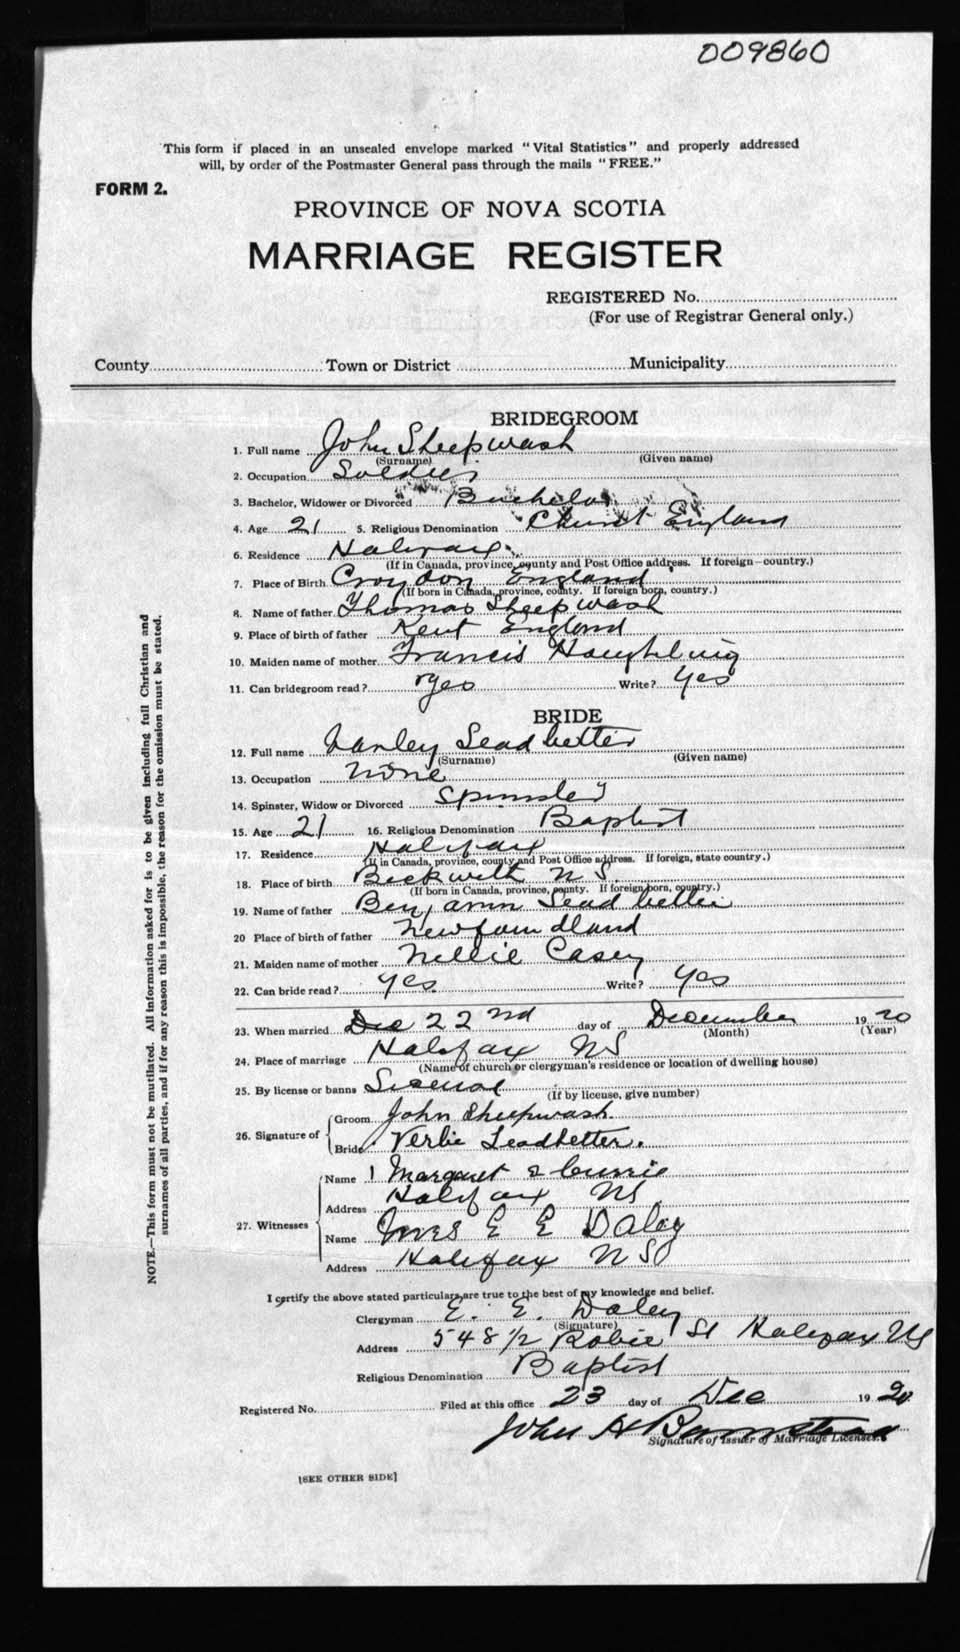 009860
This form if placed in an unsealed envelope marked "Vital Statistics" and properly addressed
will, by order of the Postmaster General pass through the mails "FREE."
FORM 2.
PROVINCE OF NOVA SCOTIA
MARRIAGE REGISTER
REGISTERED No.
(For use of Registrar General only.)
County Town or District Municipality
BRIDEGROOM
1. Full name John Sheepwash
(Surname) (Given name)
2. Occupation Soldier
3. Bachelor, Widower or Divorced Bachelor
4. Age 21 5. Religious Denomination Church England
6. Residence Halifax
(If in Canada, province, county and Post Office address. If foreign—country.)
7. Place of Birth Croydon England
(If born in Canada, province, county. If foreign born, country.)
8. Name of father Thomas Sheepwash
9. Place of birth of father Kent England
10. Maiden name of mother Francis
11. Can bridegroom read? yes Write? yes
BRIDE
12. Full name Leadbetter
(Surname) (Given name)
13. Occupation None
14. Spinster, Widow or Divorced Spinster
15. Age 21 16. Religious Denomination Baptist
17. Residence Halifax
(If in Canada, province, county and Post Office address. If foreign, state country.)
18. Place of birth Beckwith N S.
(If born in Canada, province, county. If foreign born, country.)
19. Name of father Benjamin Leadbetter
20 Place of birth of father Newfoundland
21. Maiden name of mother Nellie Casey
22. Can bride read? yes Write? yes
23. When married Dec 22nd day of December 1920
(Month) (Year)
24. Place of marriage Halifax NS
(Name of church or clergyman's residence or location of dwelling house)
25. By license or banns
(If by license, give number)
26. Signature of Groom John Sheepwash
Bride Verlie Leadbetter.
27. Witnesses Name 1 Margaret Currie
Address Halifax NS
Name Mrs E E Daley
Address Halifax N S
I certify the above stated particulars are true to the best of my knowledge and belief.
Clergyman E. E. Daley
(Signature)
Address 548 1/2 Robie St Halifax NS
Religious Denomination Baptist
Registered No. Filed at this office 23 day of Dec 1920
John H Barnstead
Signature of Issuer of Marriage Licenses.
[SEE OTHER SIDE]
NOTE.—This form must not be mutilated. All information asked for is to be given including full Christian and
surnames of all parties, and if for any reason this is impossible, the reason for the omission must be stated.